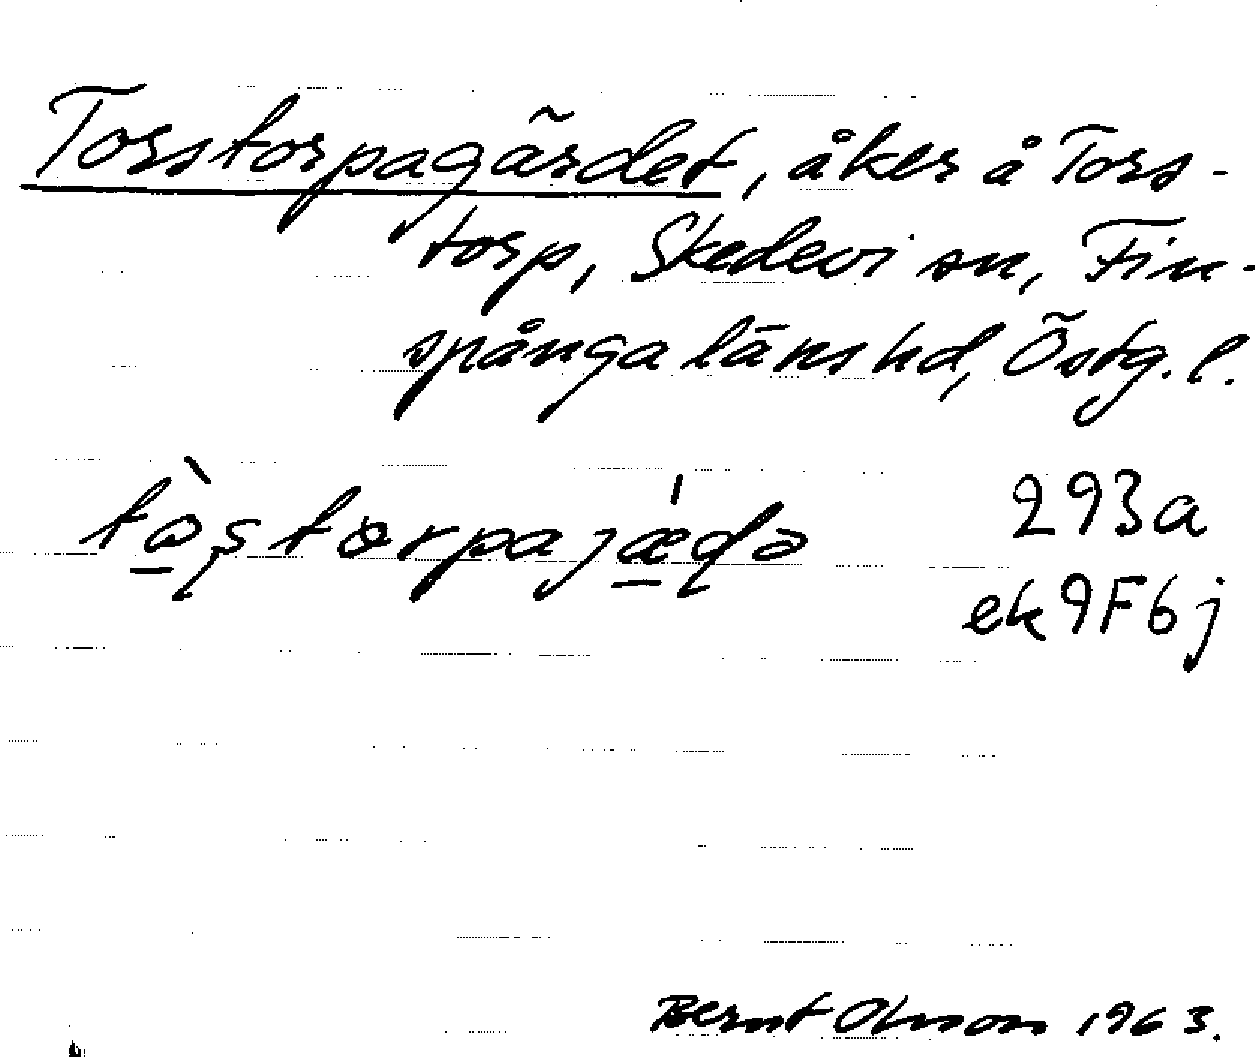 Torstorpagärdet, åker å Tors-
torp, Skedevi sn, Fin-
spånga läns hd, Östg. l.
293a
ek9F6j
Bernt Olsson 1963.